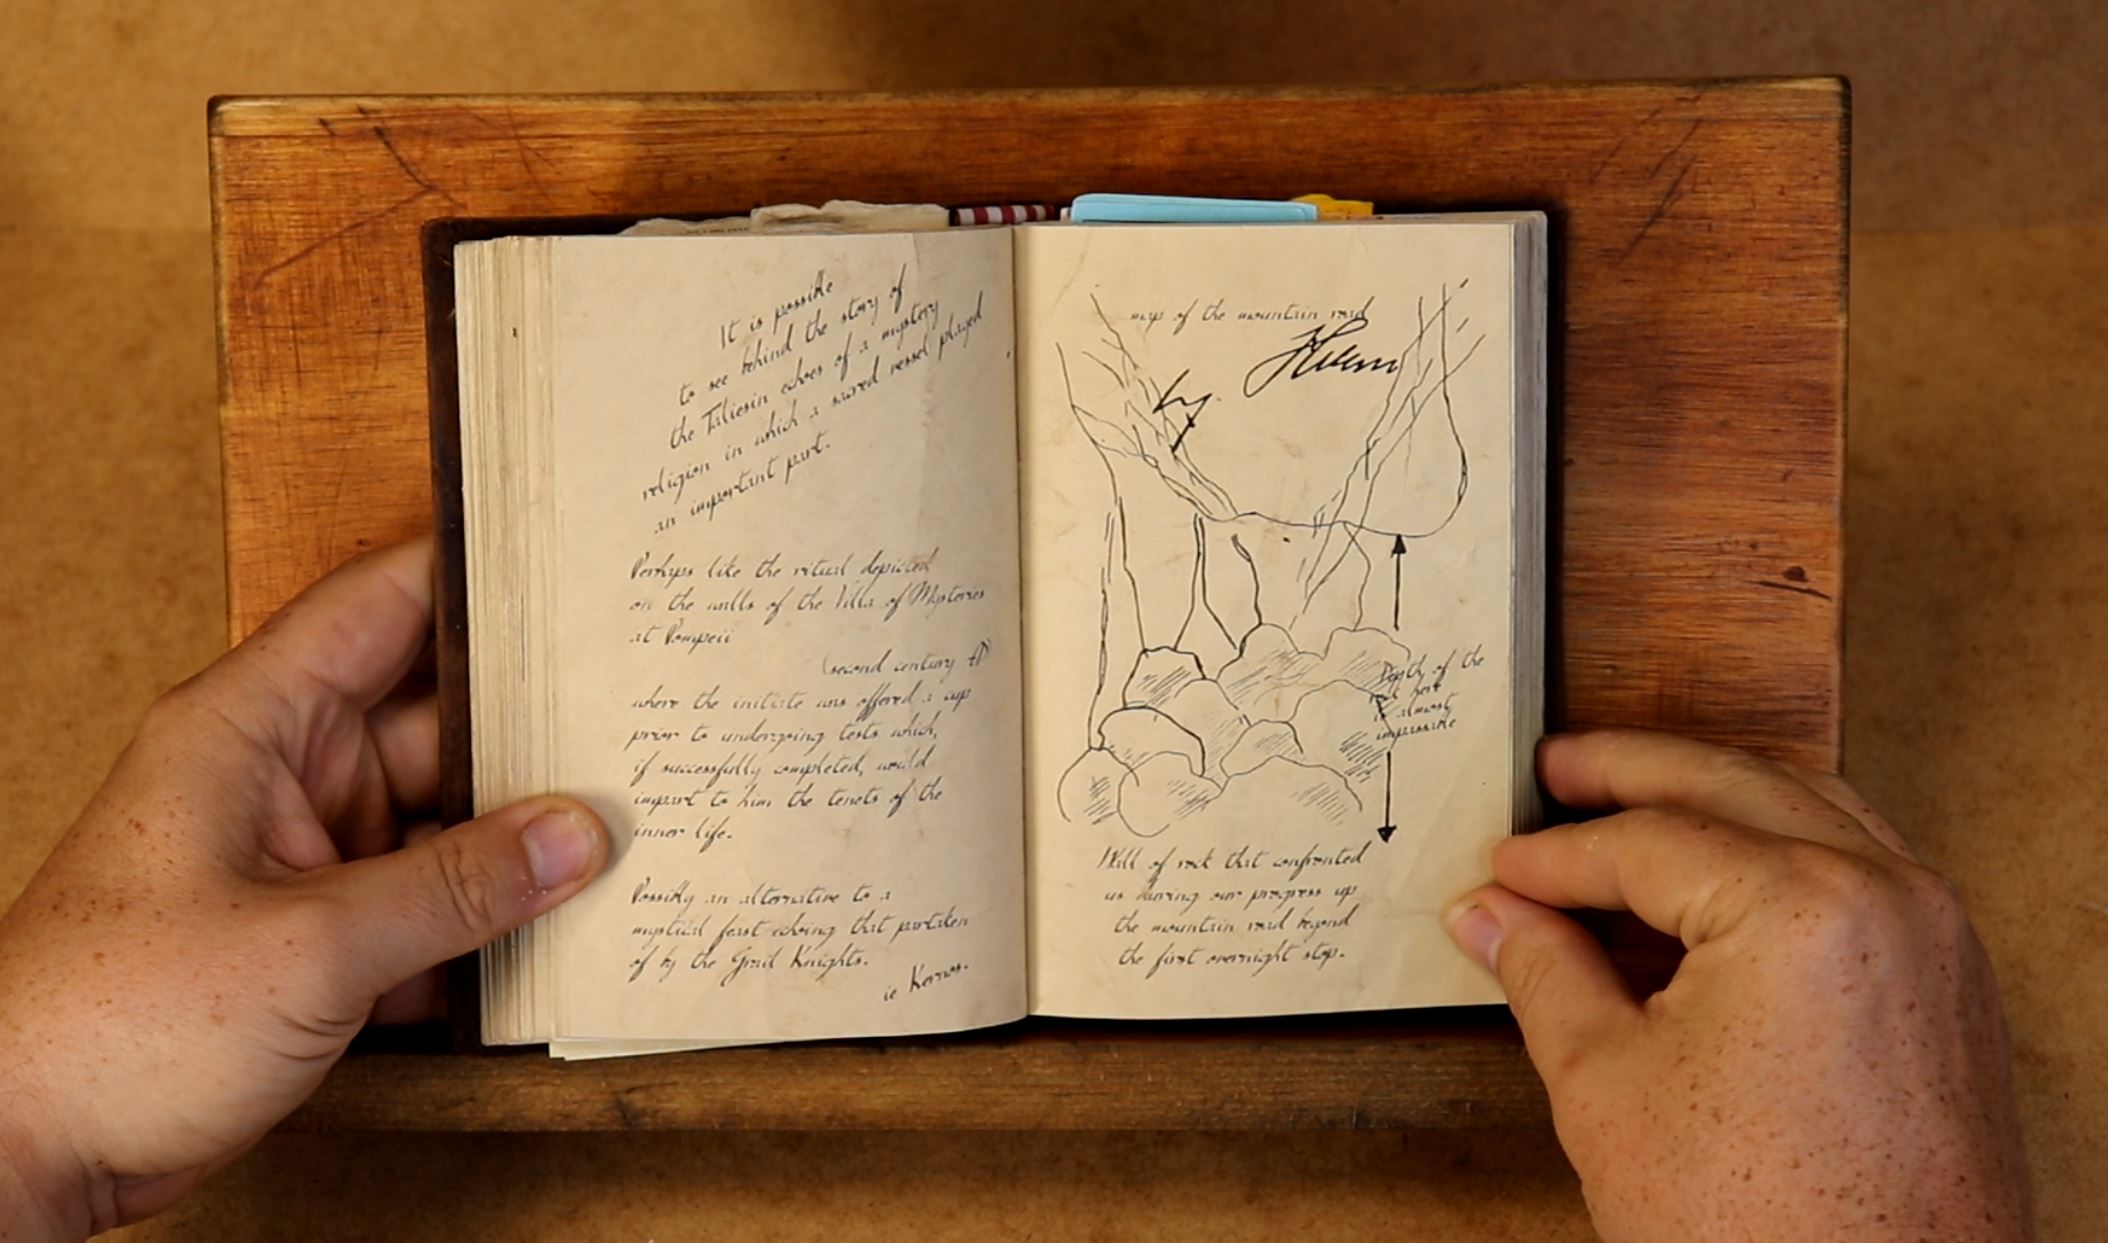 It is possible
to see behind the story of
the Taliesin echoes of a mystery
religion in which a sacred vessel played
an important part.
Perhaps like the ritual depicted
on the walls of the Villa of Mysteries
at Pompeii
(second century AD)
where the initiate was offered a cup
prior to undergoing tests which,
if successfully completed, would
impart to him the tenets of the
inner life.
Possibly an alternative to a
mystical feast echoing that partaken
of by the Grail Knights.
ie Kernos.
map of the mountain road
by
Depth of the
rock here
is almost
impassable
Wall of rock that confronted
us during our progress up
the mountain road beyond
the first overnight stop.